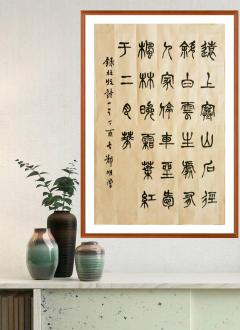 遠上寒山石徑
斜白雲生處有
人家停車坐愛
楓林晚霜葉紅
于二月花
錄杜牧詩一首丁酉